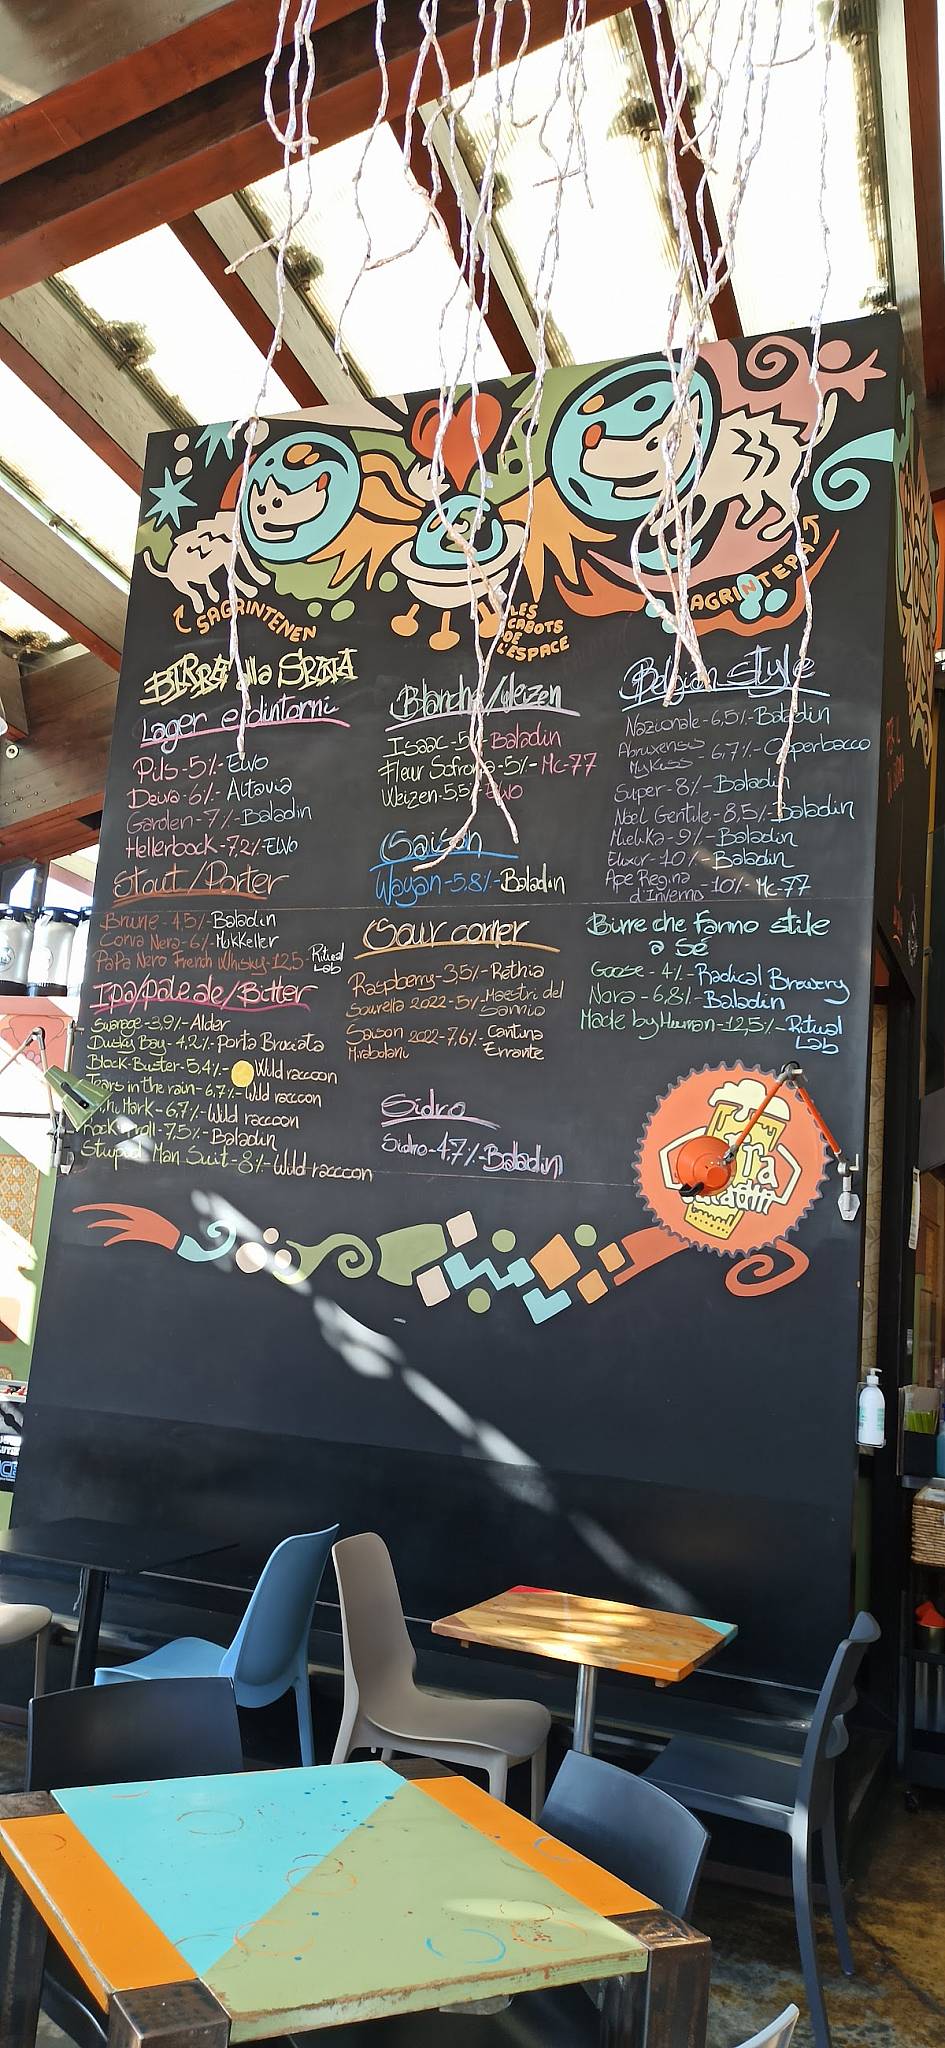 SAGRINTENEN
LES
CABOTS
DE
L'ESPACE
SAGRINTEPA
BIRRA alla SPINA
Lager e dintorni
Pils-5%-Elvo
Deiva-6%-Altavia
Garden-7%-Baladin
Hellerbock-7,2%-Elvo
Stout/Porter
Brune-4,5%-Baladin
Corva Nera-6%-Mikkeller
Papa Nero French Whisky-12,5-Ritual
Lab
Ipa/pale ale/Bitter
Swange-3,9%-Alder
Dusky Bay-4,2%-Porta Bruciata
Block Buster-5,4%-Wild raccoon
Tears in the rain-6,7%-Wild raccoon
Mark-6,7%-Wild raccoon
Rock'n'roll-7,5%-Baladin
Stupid Man Suit-8%-Wild raccoon
Blanche/Weizen
Isaac-5%-Baladin
Fleur Sofronia-5%-Mc-77
Weizen-5,5%-Elvo
Saison
Wayan-5,8%-Baladin
Sour corner
Raspberry-3,5%-Rethia
Sourella 2022-5%-Maestri del
Sannio
Saison 2022-7,6%-Cantina
Mirabolani Errante
Sidro
Sidro-4,7%-Baladin
Belgian style
Nazionale-6,5%-Baladin
Abruxensis
MyKiss-6,7%-Opperbacco
Super-8%-Baladin
Noel Gentile-8,5%-Baladin
Mielika-9%-Baladin
Elixir-10%-Baladin
Ape Regina
d'Inverno-10%-Mc-77
Birre che fanno stile
a sé
Goose-4%-Radical Brewery
Nora-6,8%-Baladin
Made by Human-12,5%-Ritual
Lab